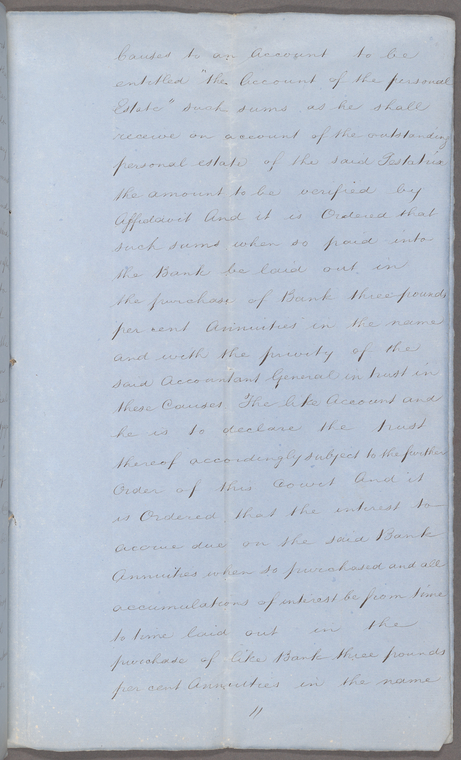 Causes to an Account to be
entitled "the Account of the personal
Estate" such sums as he shall
receive on account of the outstanding
personal estate of the said Testatrix
the amount to be verified by
Affidavit And it is Ordered that
such sums when so paid into
the Bank be laid out in
the purchase of Bank three pounds
per cent Annuities in the name
and with the privity of the
said Accountant General in trust in
these Causes The like Account and
he is to declare the trust
thereof accordingly subject to the further
Order of this Court And it
is Ordered that the interest to
accrue due on the said Bank
Annuities when so purchased and all
accumulations of interest be from time
to time laid out in the
purchase of like Bank three pounds
per cent Annuities in the name